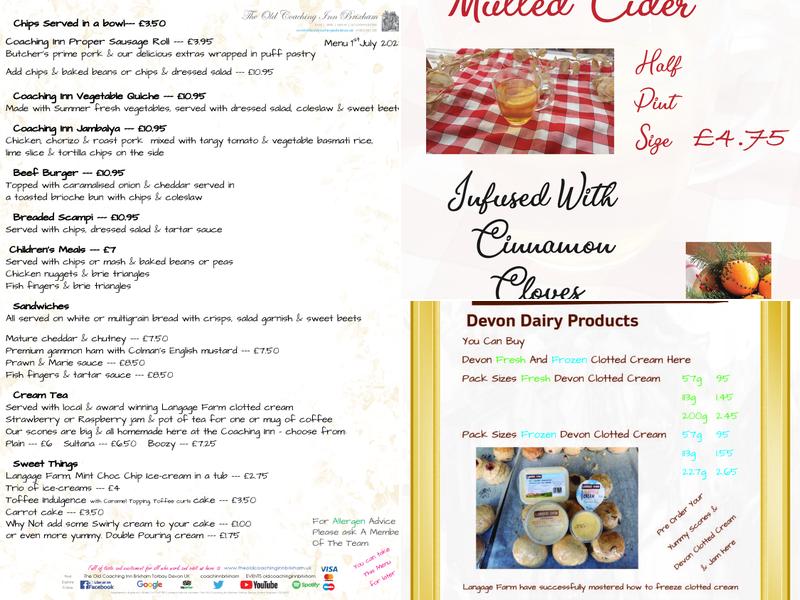 Chips Served in a bowl--- £3.50
The Old Coaching Inn Brixham
Coaching Inn Proper Sausage Roll --- £3.95
Menu 1st July 202
Butcher's prime pork & our delicious extras wrapped in puff pastry
Add chips & baked beans or chips & dressed salad --- £10.95
Coaching Inn Vegetable Quiche --- £10.95
Made with Summer fresh vegetables, served with dressed salad, coleslaw & sweet beet
Coaching Inn Jambalya --- £10.95
Chicken, chorizo & roast pork mixed with tangy tomato & vegetable basmati rice,
lime slice & tortilla chips on the side
Beef Burger --- £10.95
Topped with caramalised onion & cheddar served in
a toasted brioche bun with chips & coleslaw
Breaded Scampi --- £10.95
Served with chips, dressed salad & tartar sauce
Children's Meals --- £7
Served with chips or mash & baked beans or peas
Chicken nuggets & brie triangles
Fish fingers & brie triangles
Sandwiches
All served on white or multigrain bread with crisps, salad garnish & sweet beets
Mature cheddar & chutney --- £7.50
Premium gammon ham with Colman's English mustard --- £7.50
Prawn & Marie sauce --- £8.50
Fish fingers & tartar sauce --- £8.50
Cream Tea
Served with local & award winning Langage Farm clotted cream
Strawberry or Raspberry jam & pot of tea for one or mug of coffee
Our scones are big & all homemade here at the Coaching Inn - choose from
Plain --- £6 Sultana --- £6.50 Boozy --- £7.25
Sweet Things
Langage Farm, Mint Choc Chip Ice-cream in a tub --- £2.75
Trio of ice-creams --- £4
Toffee Indulgence with Caramel Topping, Toffee curls cake --- £3.50
Carrot cake --- £3.50
Why Not add some Swirly cream to your cake --- £1.00
or even more yummy, Double Pouring cream --- £1.75
For Allergen Advice
Please ask A Membe
Of The Team
You can take
This Menu
for later
www.theoldcoachinginnbrixham.uk
The Old Coaching Inn Brixham Torbay Devon UK coachinnbrixham EVENTS oldcoachinginnbrixham
Facebook Google YouTube Spotify
VISA
Mulled Cider
Half
Pint
Size £4.75
Infused With
Cinnamon
Cloves
Devon Dairy Products
You Can Buy
Devon Fresh And Frozen Clotted Cream Here
Pack Sizes Fresh Devon Clotted Cream 57g 95
113g 1.45
200g 2.45
Pack Sizes Frozen Devon Clotted Cream 57g 95
113g 1.55
227g 2.65
Pre Order Your
Yummy Scones &
Devon Clotted Cream
& Jam here
Langage Farm have successfully mastered how to freeze clotted cream